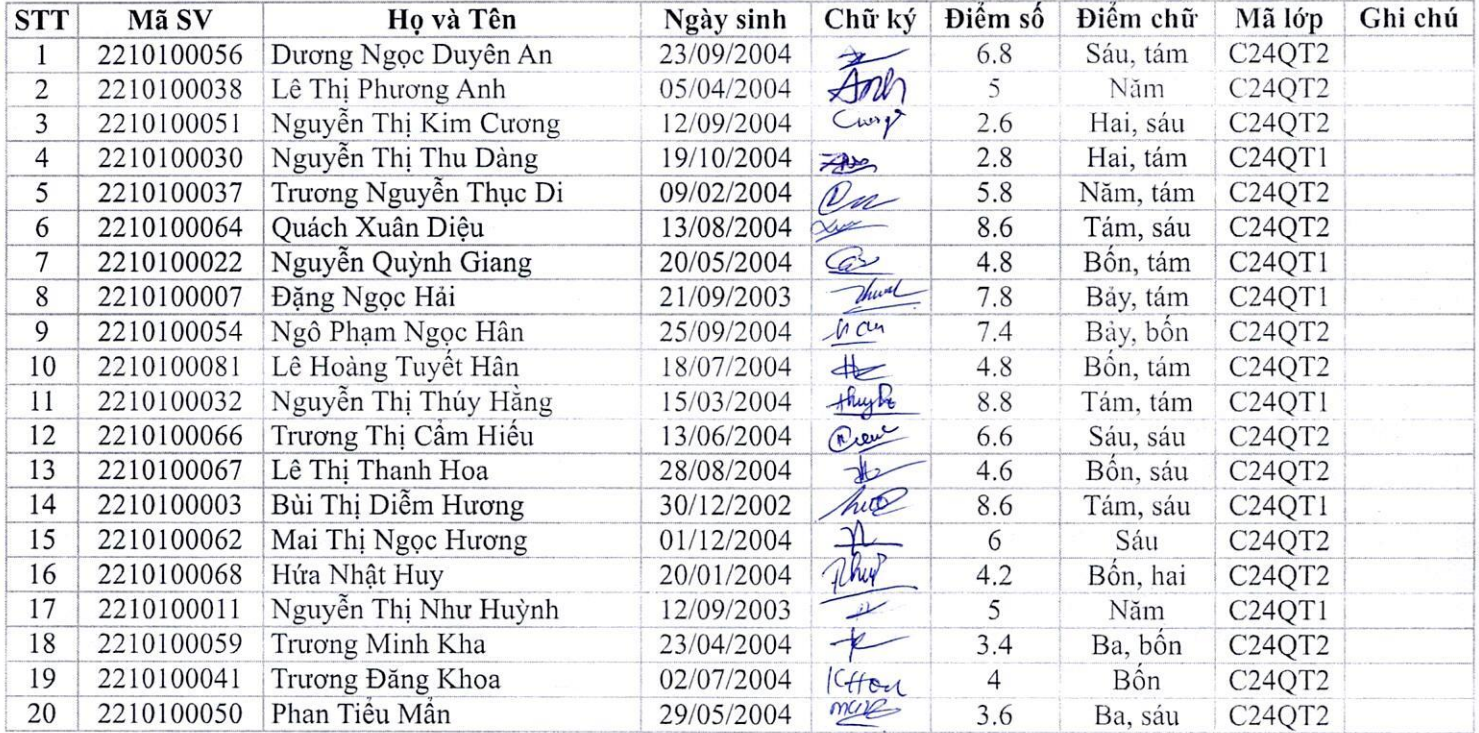 STT Mã SV Họ và Tên Ngày sinh Chữ ký Điểm số Điểm chữ Mã lớp Ghi chú
1 2210100056 Dương Ngọc Duyên An 23/09/2004 6.8 Sáu, tám C24QT2
2 2210100038 Lê Thị Phương Anh 05/04/2004 Anh 5 Năm C24QT2
3 2210100051 Nguyễn Thị Kim Cương 12/09/2004 2.6 Hai, sáu C24QT2
4 2210100030 Nguyễn Thị Thu Dàng 19/10/2004 2.8 Hai, tám C24QT1
5 2210100037 Trương Nguyễn Thục Di 09/02/2004 5.8 Năm, tám C24QT2
6 2210100064 Quách Xuân Diệu 13/08/2004 8.6 Tám, sáu C24QT2
7 2210100022 Nguyễn Quỳnh Giang 20/05/2004 4.8 Bốn, tám C24QT1
8 2210100007 Đặng Ngọc Hải 21/09/2003 7.8 Bảy, tám C24QT1
9 2210100054 Ngô Phạm Ngọc Hân 25/09/2004 7.4 Bảy, bốn C24QT2
10 2210100081 Lê Hoàng Tuyết Hân 18/07/2004 4.8 Bốn, tám C24QT2
11 2210100032 Nguyễn Thị Thúy Hằng 15/03/2004 8.8 Tám, tám C24QT1
12 2210100066 Trương Thị Cẩm Hiếu 13/06/2004 6.6 Sáu, sáu C24QT2
13 2210100067 Lê Thị Thanh Hoa 28/08/2004 4.6 Bốn, sáu C24QT2
14 2210100003 Bùi Thị Diễm Hương 30/12/2002 8.6 Tám, sáu C24QT1
15 2210100062 Mai Thị Ngọc Hương 01/12/2004 6 Sáu C24QT2
16 2210100068 Hứa Nhật Huy 20/01/2004 4.2 Bốn, hai C24QT2
17 2210100011 Nguyễn Thị Như Huỳnh 12/09/2003 5 Năm C24QT1
18 2210100059 Trương Minh Kha 23/04/2004 3.4 Ba, bốn C24QT2
19 2210100041 Trương Đăng Khoa 02/07/2004 4 Bốn C24QT2
20 2210100050 Phan Tiểu Mẩn 29/05/2004 3.6 Ba, sáu C24QT2